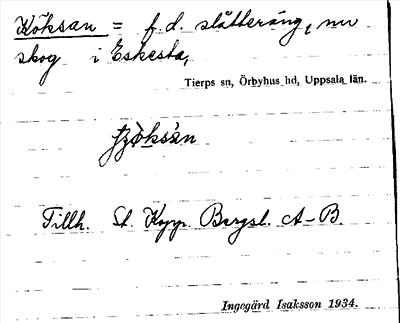 Köksan = f.d. slåtteräng, nu
skog i Eskesta,
Tierps sn, Örbyhus hd, Uppsala län.
Tillh. St. Kopp. Bergsl. A-B.
Ingegärd Isaksson 1934.